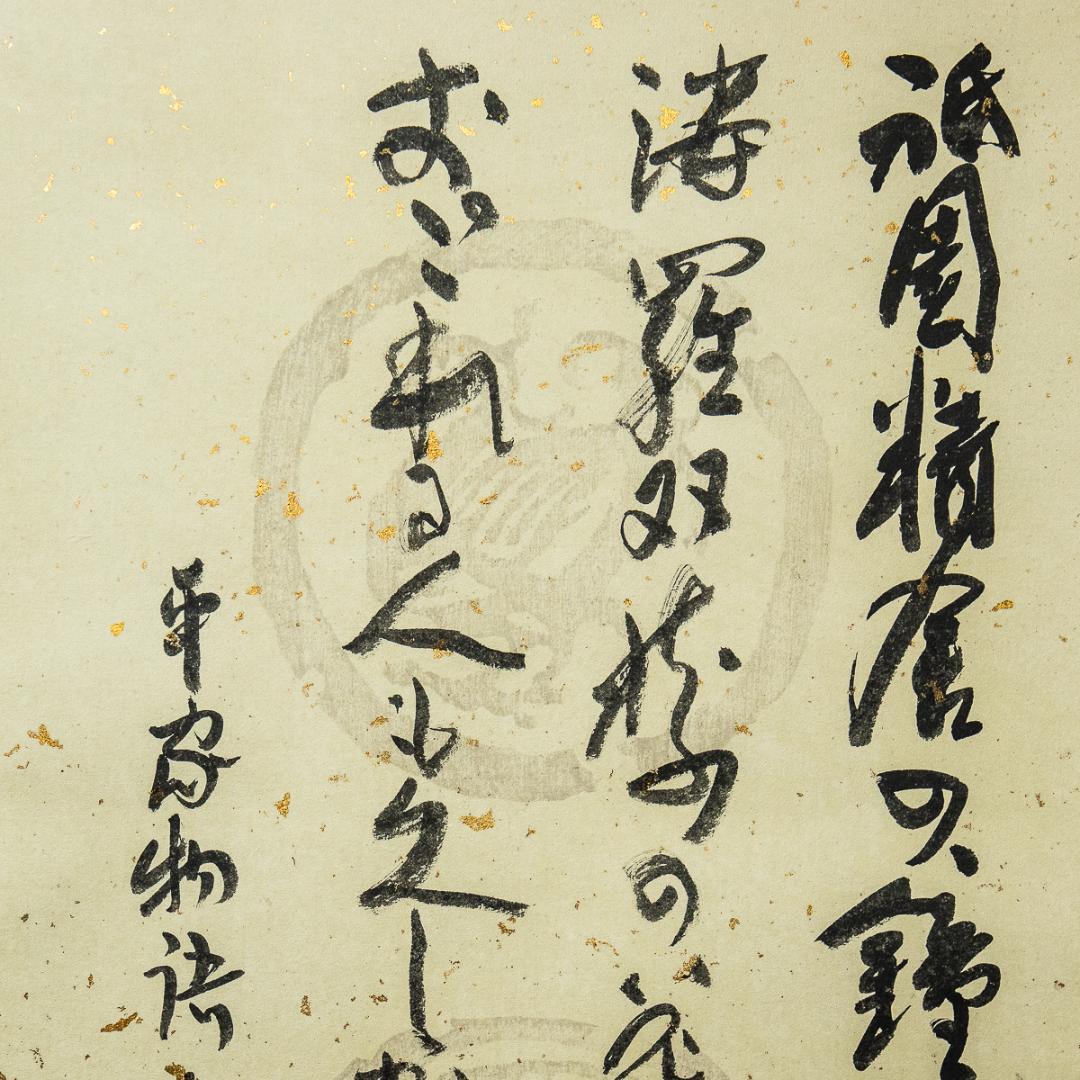 祇園精舎の鐘
娑羅双樹の花
おごれる人も久し
平家物語